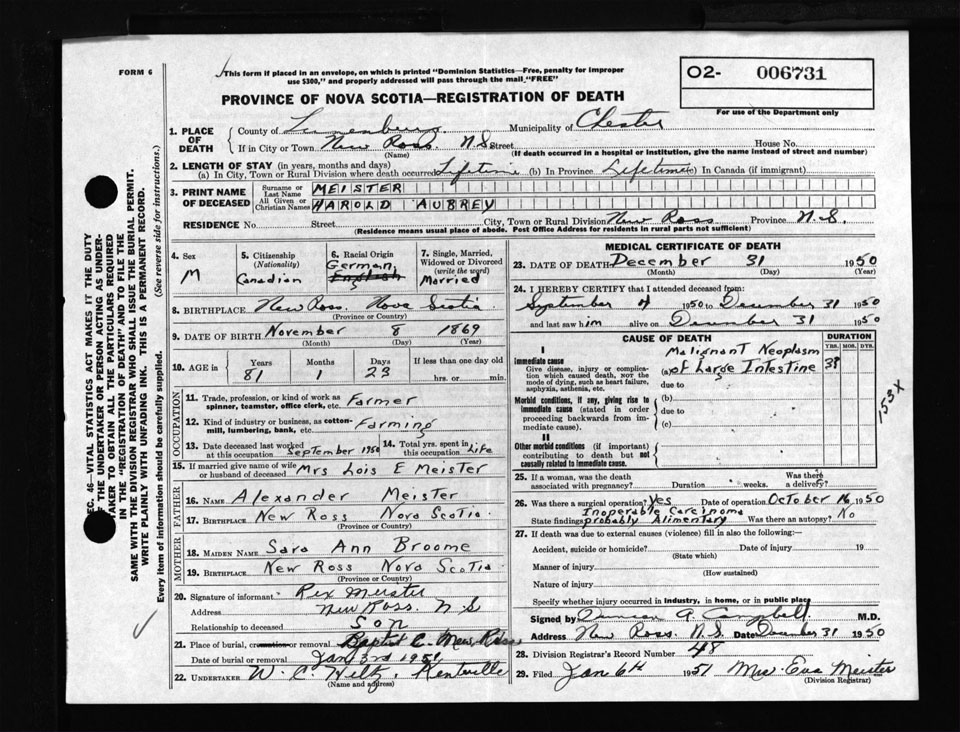 FORM 6
This form if placed in an envelope, on which is printed "Dominion Statistics—Free, penalty for improper
use $300," and properly addressed will pass through the mail "FREE"
O2- 006731
For use of the Department only
PROVINCE OF NOVA SCOTIA—REGISTRATION OF DEATH
1. PLACE OF DEATH
County of Lunenburg Municipality of Chester
If in City or Town New Ross. N.S. Street House No.
(Name) (If death occurred in a hospital or institution, give the name instead of street and number)
2. LENGTH OF STAY (in years, months and days)
(a) In City, Town or Rural Division where death occurred Lifetime (b) In Province Lifetime (c) In Canada (if immigrant)
3. PRINT NAME OF DECEASED
Surname or Last Name MEISTER
All Given or Christian Names HAROLD AUBREY
RESIDENCE No. Street City, Town or Rural Division New Ross Province N.S.
(Residence means usual place of abode. Post Office Address for residents in rural parts not sufficient)
4. Sex M
5. Citizenship (Nationality) Canadian
6. Racial Origin German English
7. Single, Married, Widowed or Divorced (write the word) Married
8. BIRTHPLACE New Ross, Nova Scotia
(Province or Country)
9. DATE OF BIRTH November 8 1869
(Month) (Day) (Year)
10. AGE in Years 81 Months 1 Days 23 If less than one day old hrs. or min.
OCCUPATION
11. Trade, profession, or kind of work as spinner, teamster, office clerk, etc. Farmer
12. Kind of industry or business, as cotton-mill, lumbering, bank, etc. Farming
13. Date deceased last worked at this occupation September 1950
14. Total yrs. spent in this occupation Life
15. If married give name of wife or husband of deceased Mrs Lois E Meister
FATHER
16. Name Alexander Meister
17. Birthplace New Ross Nova Scotia
(Province or Country)
MOTHER
18. Maiden Name Sara Ann Broome
19. Birthplace New Ross Nova Scotia
(Province or Country)
20. Signature of informant Rex Meister
Address New Ross. N S
Relationship to deceased Son
21. Place of burial, cremation or removal Baptist C. New Ross
Date of burial or removal Jan 3rd 1951
22. UNDERTAKER W. C. Hiltz, Kentville
(Name and address)
MEDICAL CERTIFICATE OF DEATH
23. DATE OF DEATH December 31 1950
(Month) (Day) (Year)
24. I HEREBY CERTIFY that I attended deceased from:
September 1950 to December 31 1950
and last saw him alive on December 31 1950
CAUSE OF DEATH
DURATION
YRS. MOS. DYS.
I
Immediate cause
Give disease, injury or complication which caused death, not the mode of dying, such as heart failure, asphyxia, asthenia, etc.
Malignant Neoplasm
(a) of Large Intestine
due to
Morbid conditions, if any, giving rise to immediate cause (stated in order proceeding backwards from immediate cause).
(b)
due to
(c)
153X
II
Other morbid conditions (if important) contributing to death but not causally related to immediate cause.
25. If a woman, was the death associated with pregnancy? Duration weeks. Was there a delivery?
26. Was there a surgical operation? Yes Date of operation October 16 1950
Inoperable Carcinoma
State findings probably Alimentary Was there an autopsy? No
27. If death was due to external causes (violence) fill in also the following:—
Accident, suicide or homicide? Date of injury 19
(State which)
Manner of injury
(How sustained)
Nature of injury
Specify whether injury occurred in industry, in home, or in public place
Signed by Duncan A. Campbell M.D.
Address New Ross. N.S. Date December 31 1950
28. Division Registrar's Record Number 48
29. Filed Jan 6th 1951 Mrs Eva Meister
(Division Registrar)
SEC. 46—VITAL STATISTICS ACT MAKES IT THE DUTY
OF THE UNDERTAKER OR PERSON ACTING AS UNDER-
TAKER TO OBTAIN ALL THE PARTICULARS REQUIRED
IN THE "REGISTRATION OF DEATH" AND TO FILE THE
SAME WITH THE DIVISION REGISTRAR WHO SHALL ISSUE THE BURIAL PERMIT.
WRITE PLAINLY WITH UNFADING INK. THIS IS A PERMANENT RECORD.
Every item of information should be carefully supplied. (See reverse side for instructions.)